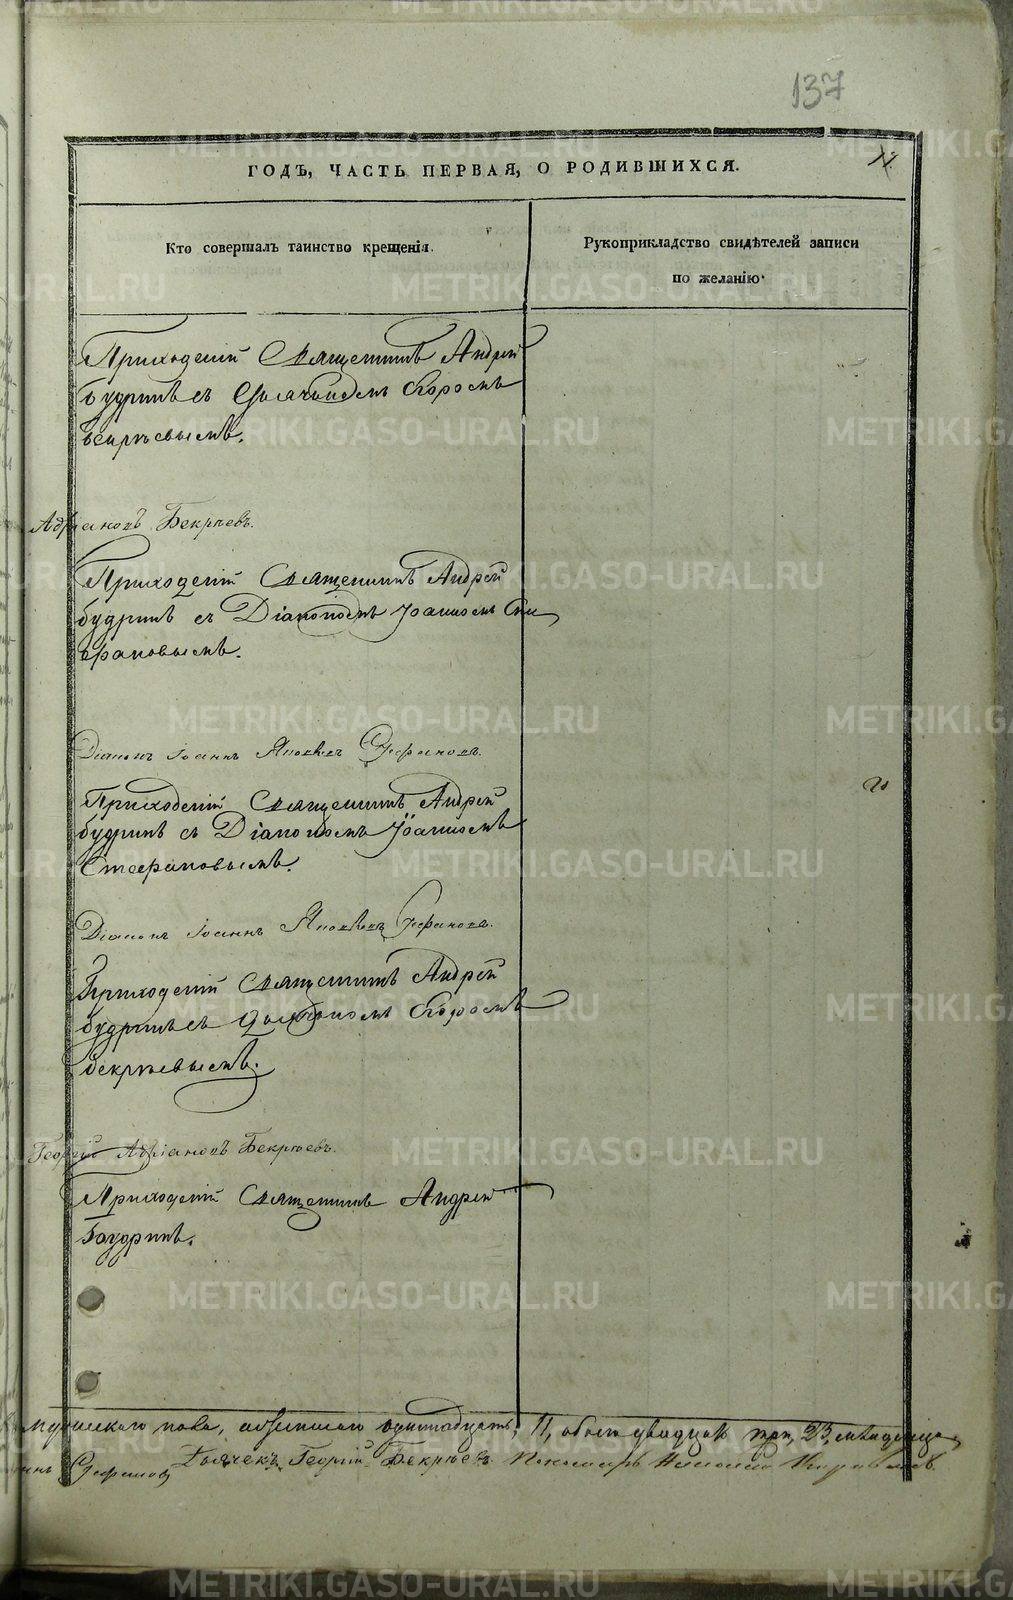 137
ГОДЪ, ЧАСТЬ ПЕРВАЯ, О РОДИВШИХСЯ.
Кто совершалъ таинство крещенія.
Рукоприкладство свидѣтелей записи
по желанію.
Приходскій Священникъ Андрей
Будринъ съ
Адріановъ Бекрѣевъ.
Приходскій Священникъ Андрей
Будринъ съ Діакономъ Іоанномъ Сте
фановымъ.
Діаконъ Іоаннъ Яковлевъ Стефановъ.
Приходскій Священникъ Андрей
Будринъ съ Діакономъ Іоанномъ
Стефановымъ.
Діаконъ Іоаннъ Яковлевъ Стефановъ.
Приходскій Священникъ Андрей
Будринъ съ
Бекрѣевымъ.
Георгій Адріановъ Бекрюевъ.
Приходскій Священникъ Андрей
Будринъ.
мужескаго пола, женскаго одиннадцать, 11, обоего двадцать три, 23, младенца
Стефановъ Дьячекъ Георгій Бекрюевъ Пономарь
METRIKI.GASO-URAL.RU